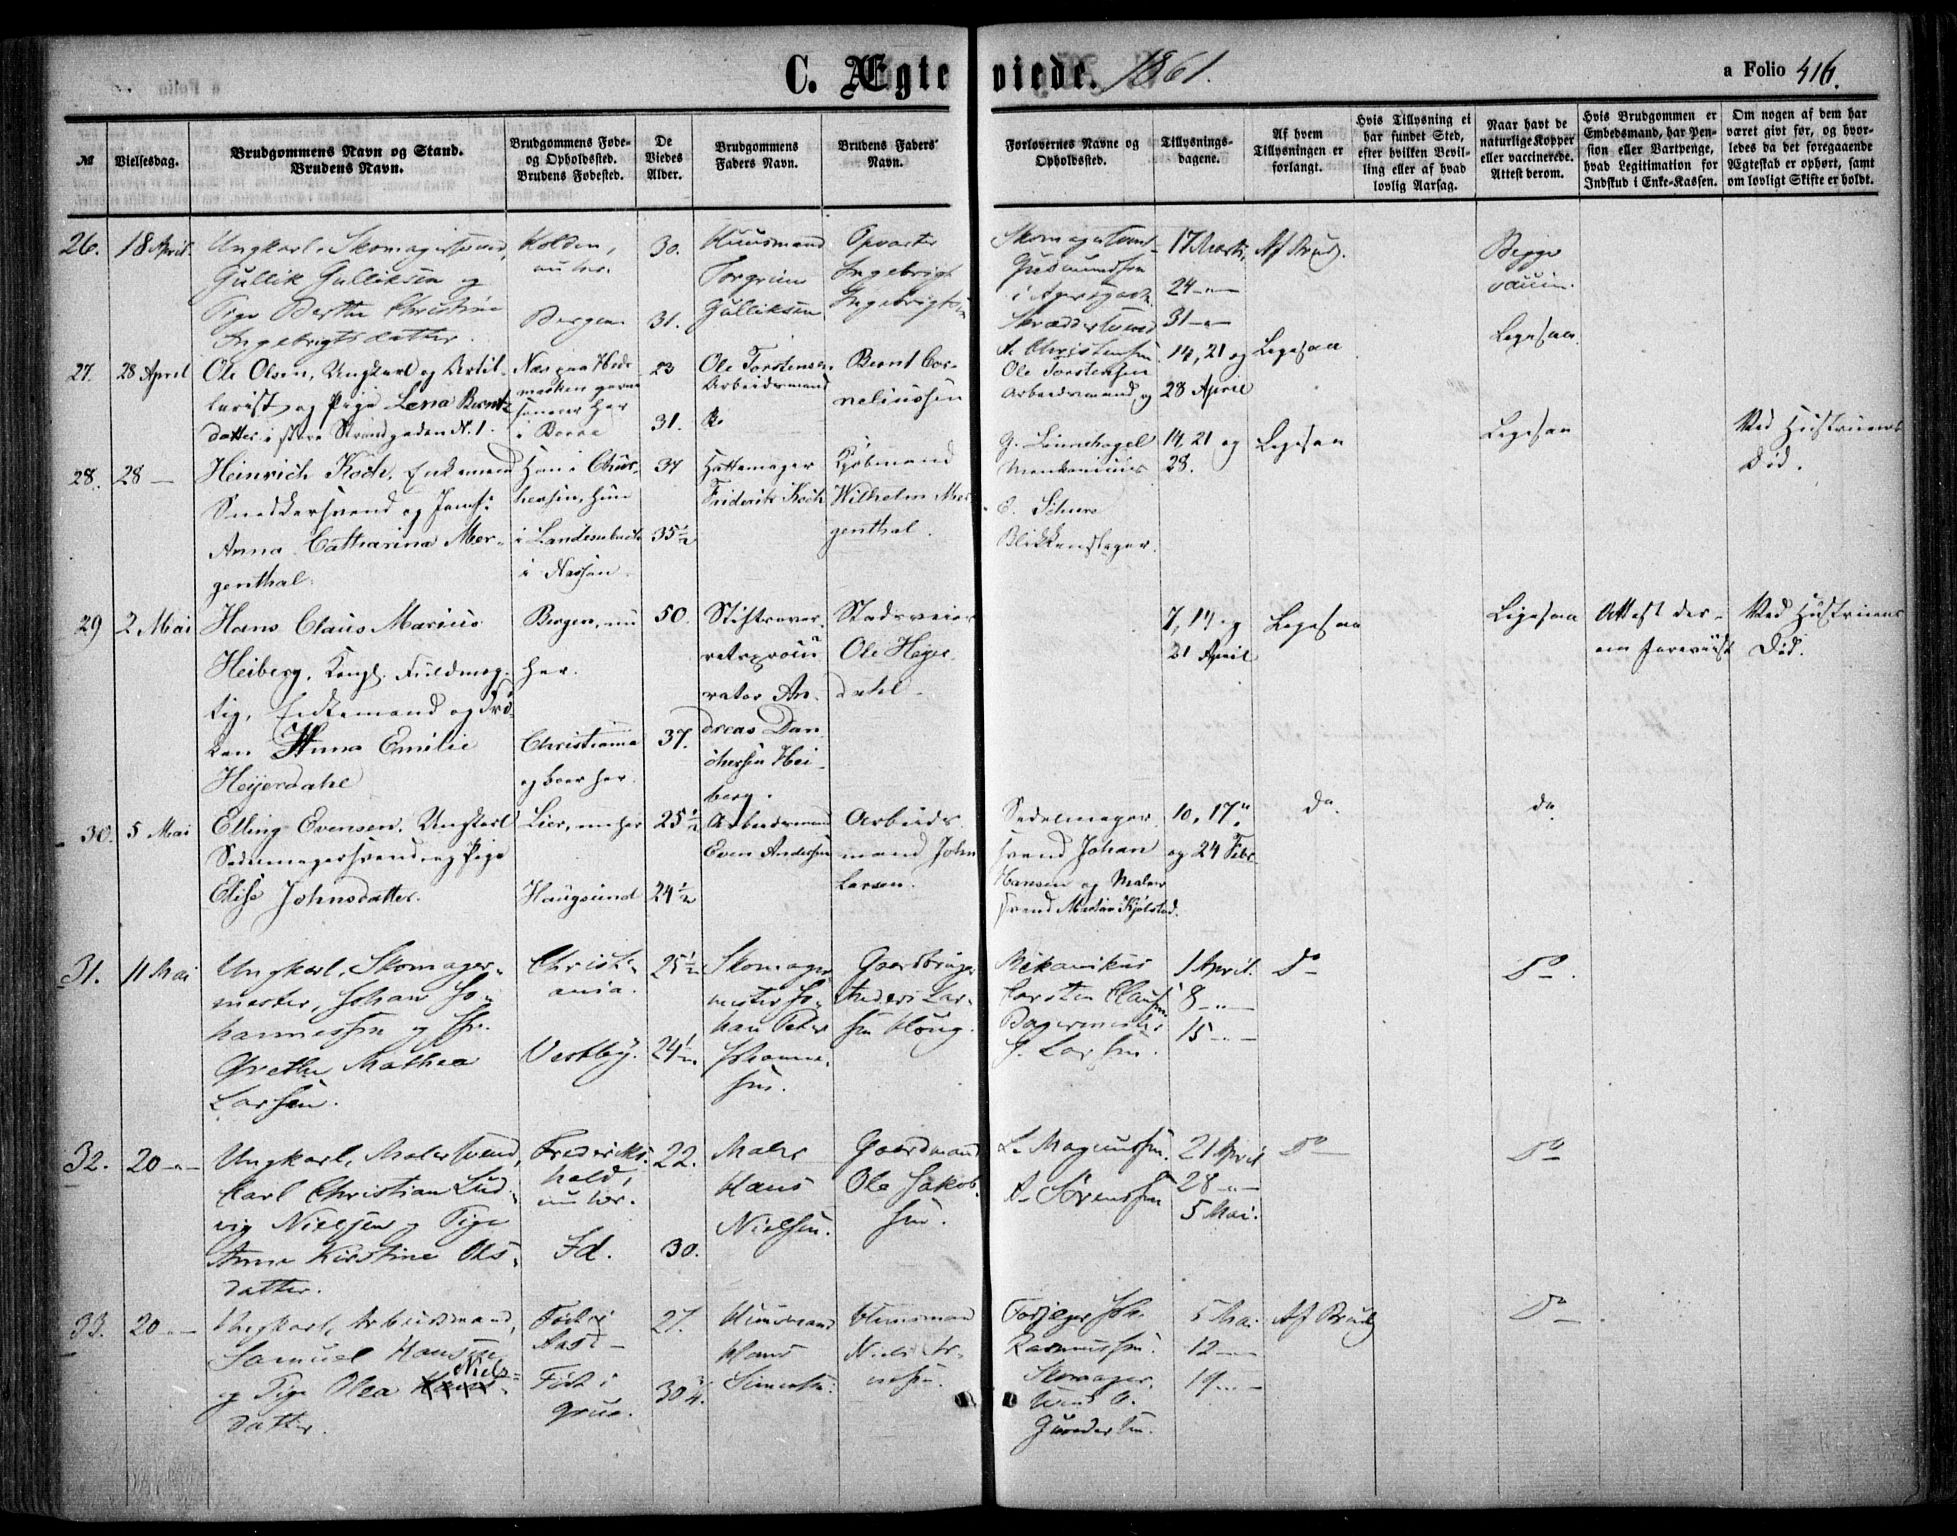 C. Ægteviede. 1861.
a Folio 416.
№
Vielsesdag.
Brudgommens Navn og Stand.
Brudens Navn.
Brudgommens Føde-
og Opholdssted.
Brudens Fødested.
De
Viedes
Alder.
Brudgommens
Faders Navn.
Brudens Faders
Navn.
Forlovernes Navne og
Opholdssted.
Tillysnings-
dagene.
Af hvem
Tillysningen er
forlangt.
Hvis Tillysning ei
har fundet Sted,
efter hvilken Bevil-
ling eller af hvad
lovlig Aarsag.
Naar havt de
naturlige Kopper
eller vaccinerede.
Attest derom.
Hvis Brudgommen er
Embedsmand, har Pen-
sion eller Vartpenge,
hvad Legitimation for
Indskud i Enke-Kassen.
Om nogen af dem har
været givt før, og hvor-
ledes da det foregaaende
Ægteskab er ophørt, samt
om lovligt Skifte er holdt.
26.
18 April.
Ungkarl, Skomagersvend,
Gullik Gulliksen og
Pige Berthe Christine
Ingebrigtsdatter.
nu her.
Bergen
30.
31.
Huusmand
Torgrim
Gulliksen
Opvarter
Ingebrigt
Ingebrigtsen
Skomagersvend
17 Marts,
24 -"-
31 -"-
Af Brudg.
Begge
vaccin.
27.
28 April
Ole Olsen, Ungkarl og Artil-
lerist og Pige Lena Bernts
datter i store Strandgaden N. 1.
Næs paa Hede
marken
her
23
31.
Ole Torstensen
Arbeidsmand
Bernt Cor-
neliussen
A. Christensen
Ole Torstensen
Arbeidsmand og
14, 21 og
28 April
Ligesaa
Ligesaa.
28.
28 —
Heinrich Koch, Enkemand
Snedkersvend og Jomf:
Anna Catharina Mer-
genthal.
Han i Chur-
hessen, hun
i
i Nassau.
37
35½
Hattemager
Friderik Koch
Kjøbmand
Wilhelm Mer-
genthal.
G.
14, 21 og
28.
Blikkenslager.
Ligesaa
Ligesaa
Ved Hustruens
Død.
29
2 Mai
Hans Claus Marius
Heiberg, Kongl. Fuldmæg-
tig, Enkemand og Frø-
ken Anna Emilie
Heyerdahl
Bergen, nu
her.
Christiania
og boer her.
50.
37.
Stiftsover-
retsprocu
rator An-
dreas Dan
chersen Hei-
berg.
Stadsveier
Ole Heyer-
dahl.
7, 14 og
21 April
Ligesaa
Ligesaa
Attest der-
om foreviist
Ved Hustruens
Død.
30.
5 Mai
Elling Evensen, Ungkarl
Sadelmagersvend og Pige
Elise Johnsdatter.
Lier, nu her
Haugsund
25½
24½
Arbeidsmand
Even Andersen
Arbeids-
mand John
Larsen.
Sadelmager-
svend Johan
Hansen og Maler
svend Martin Kjølstad.
10, 17
og 24 Febr.
do.
do.
31.
11 Mai
Ungkarl, Skomager-
mester, Johan Jo-
hannessen og Jfr.
Grethe Mathea
Larsen.
Christi-
ania.
Vestby.
25½
24½
Skomager
mester Jo-
han Peter
Johanne-
sen.
Gaardbruger
Anders Lar-
sen Houg.
Mekanikus
Carsten Clausen
Bagermester
Larsen.
1 April.
8 -"-
15 -"-
Do
Do.
32.
20 -"-
Ungkarl, Malersvend,
Carl Christian Lud-
vig Nielsen og Pige
Anne Kirstine Ols-
datter.
Frederiks-
hald,
nu her.
Id.
22.
30.
Maler
Hans
Nielsen.
Gaardmand
Ole Jakob-
sen.
L. Magnussen.
A. Sørenssen
21 April
28 -"-
5 Mai.
Do
Do
33.
20 -"-
Ungkarl, Arbeidsmand,
Samuel Hansen
Niels-
og Pige Olea
datter.
Født i
Født i
Grue.
27.
30
Huusmand
Hans
Simensen.
Huusmand
Niels
Rasmussen.
Skomager-
svend O.
Gundersen.
5 Mai
12 -"-
19 -"-
Af Brudg
Do